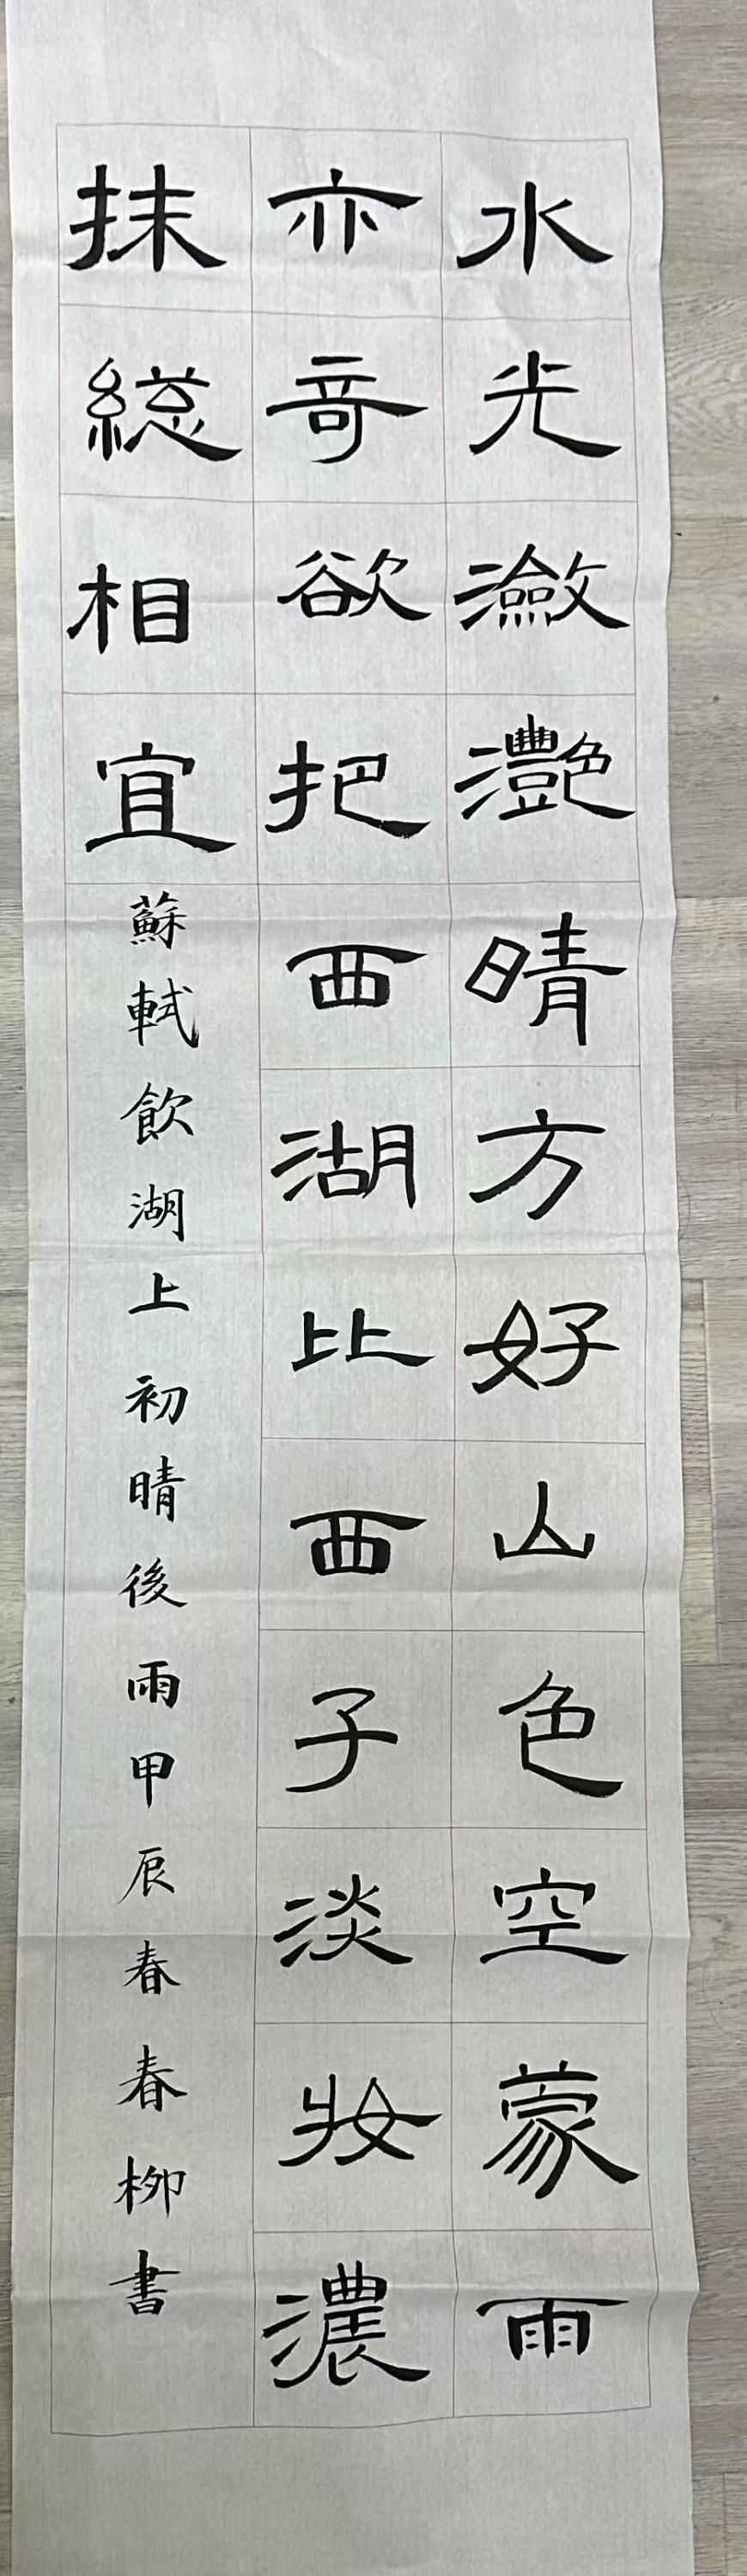 水光瀲灩晴方好山色空蒙雨
亦奇欲把西湖比西子淡妝濃
抹総相宜
蘇軾飲湖上初晴後雨甲辰春春柳書